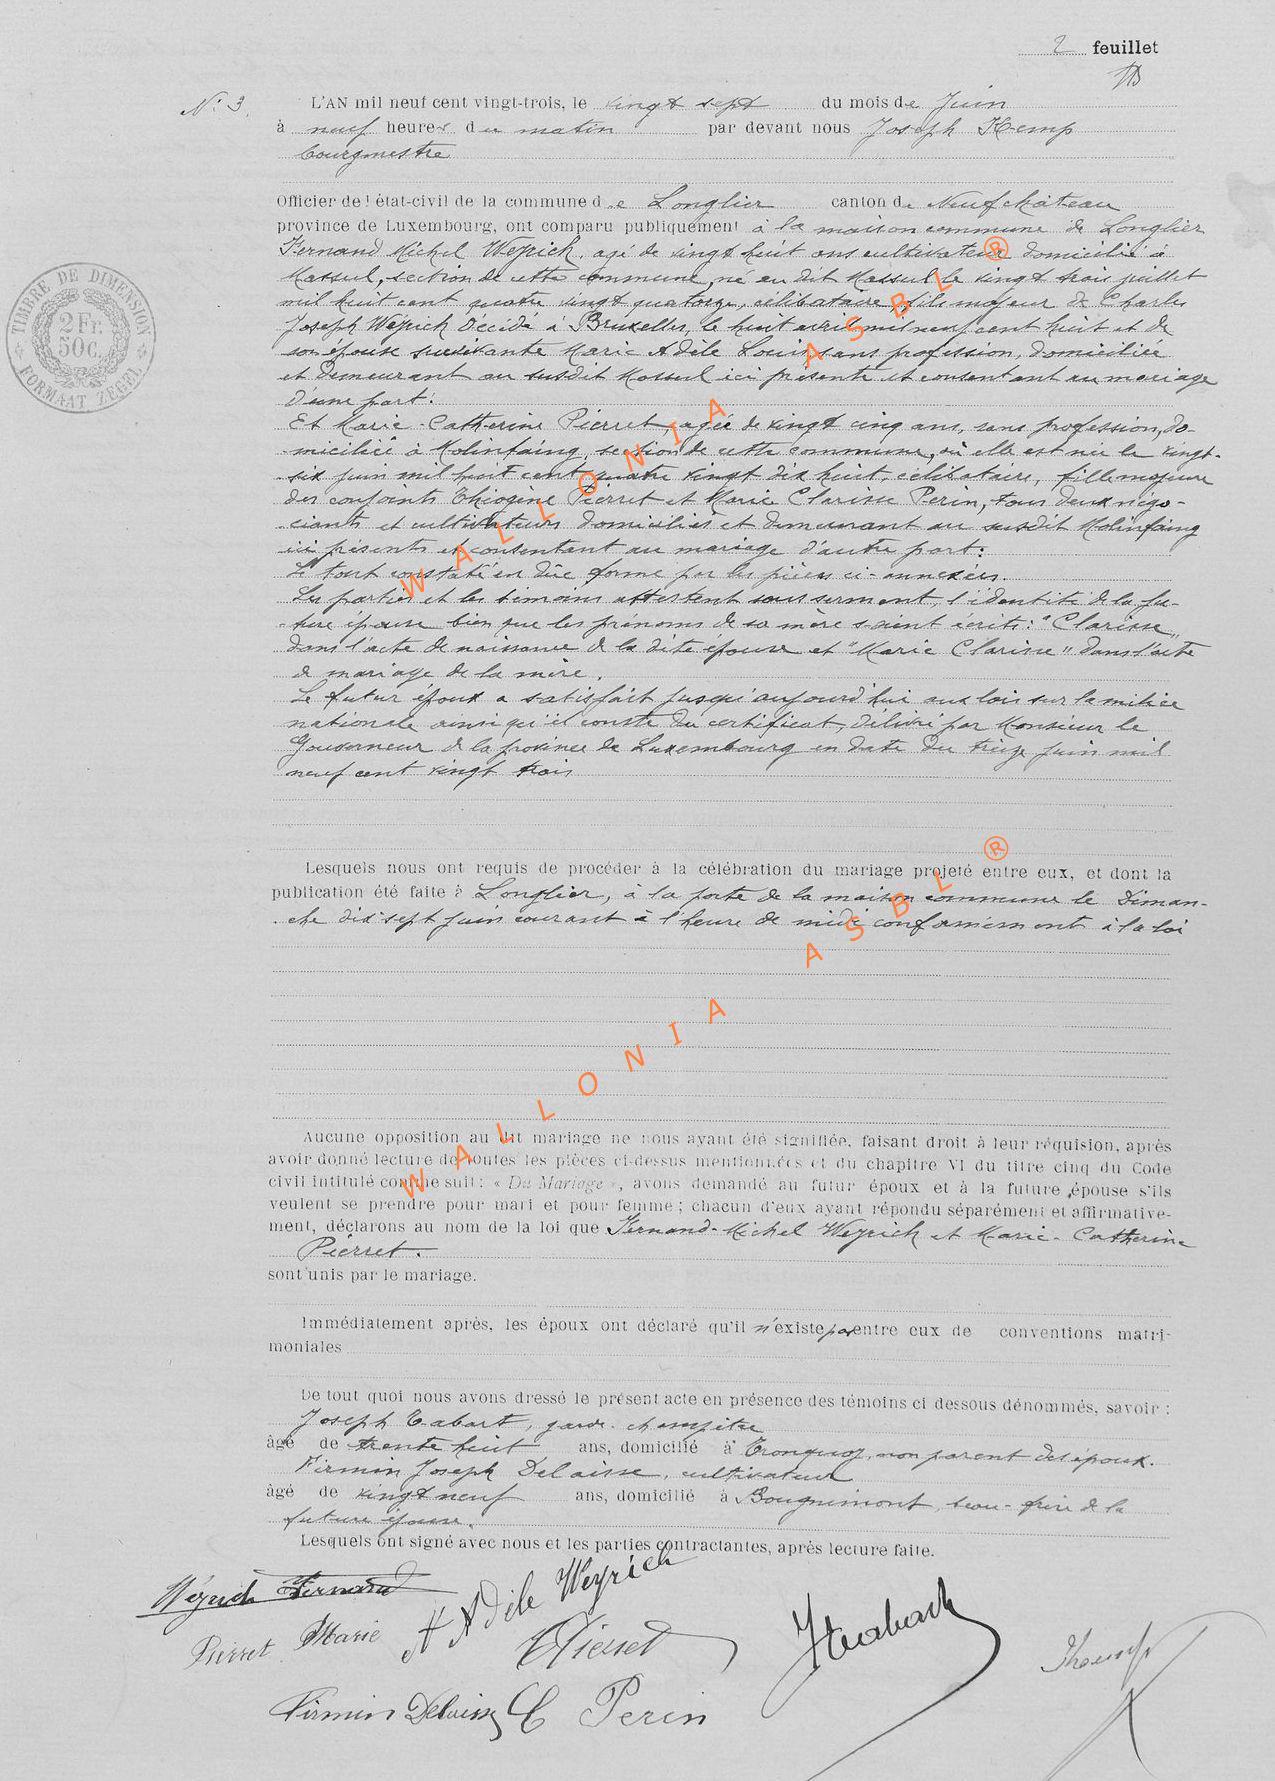 2 feuillet
N: 3.
L'AN mil neuf cent vingt-trois, le vingt sept du mois de Juin
à neuf heures du matin par devant nous Joseph Kemp
bourgmestre
Officier de l'état-civil de la commune de Longlier canton de Neufchâteau
province de Luxembourg, ont comparu publiquement à la maison commune de Longlier
Fernand Michel Weyrich, agé de vingt huit ans cultivateur domicilié à
Massul, section de cette commune, né au dit Massul le vingt trois juillet
mil huit cent quatre vingt quatorze, célibataire fils majeur de Charles
Joseph Weyrich décédé à Bruxelles, le huit avril mil neuf cent huit et de
son épouse survivante Marie Adèle Louis sans profession, domiciliée
et demeurant au susdit Massul ici présente et consentant au mariage
d'une part:
Et Marie-Catherine Pierret, agée de vingt cinq ans, sans profession, do-
miciliée à Molinfaing, section de cette commune, où elle est née le vingt-
six juin mil huit cent quatre vingt dix huit, célibataire, fille majeure
des conjoints Théogène Pierret et Marie Clarisse Perin, tous deux négo-
ciants et cultivateurs domiciliés et demeurant au susdit Molinfaing
ici présents et consentant au mariage d'autre part:
Le tout constaté en due forme par les pièces ci-annexées.
Les parties et les témoins attestent sous serment, l'identité de la fu-
-ture épouse bien que les prénoms de sa mère soient écrits: "Clarisse"
dans l'acte de naissance de la dite épouse et "Marie Clarisse" dans l'acte
de mariage de la mère.
Le futur époux a satisfait jusqu'aujourd'hui aux lois sur la milice
nationale ainsi qu'il conste du certificat, délivré par Monsieur le
Gouverneur de la province de Luxembourg en date du treize juin mil
neuf cent vingt trois
Lesquels nous ont requis de procéder à la célébration du mariage projeté entre eux, et dont la
publication été faite à Longlier, à la porte de la maison commune le Diman-
-che dix sept juin courant à l'heure de midi conformément à la loi
Aucune opposition au dit mariage ne nous ayant été signifiée, faisant droit à leur réquision, après
avoir donné lecture de toutes les pièces ci-dessus mentionnées et du chapitre VI du titre cinq du Code
civil intitulé comme suit: « Du Mariage », avons demandé au futur époux et à la future épouse s'ils
veulent se prendre pour mari et pour femme; chacun d'eux ayant répondu séparément et affirmative-
ment, déclarons au nom de la loi que Fernand-Michel Weyrich et Marie-Catherine
Pierret.
sont unis par le mariage.
Immédiatement après, les époux ont déclaré qu'il n'existe pas entre eux de conventions matri-
moniales
De tout quoi nous avons dressé le présent acte en présence des témoins ci dessous dénommés, savoir:
Joseph Tabart, garde-champêtre
âgé de trente huit ans, domicilié à Tronquoy, non parent des époux.
Firmin Joseph Delaisse, cultivateur
âgé de vingt neuf ans, domicilié à Bougnimont, beau-frère de la
future épouse.
Lesquels ont signé avec nous et les parties contractantes, après lecture faite.
Weyrich Fernand
Adèle Weyrich
Pierret Marie
Pierret
JTabart
JKemp
Firmin Delaisse
C Perin
TIMBRE DE DIMENSION
2 Fr.
50 C.
FORMAAT ZEGEL
WALLONIA ASBL ®
WALLONIA ASBL ®